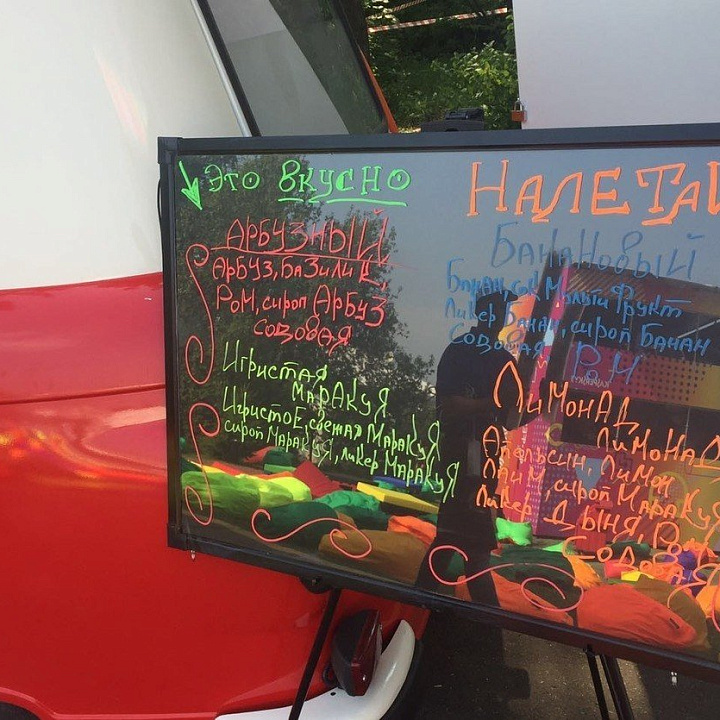 Это вкусно
АРБУЗНЫЙ
АРБУЗ, БАЗИЛИК,
РОМ, сироп АРБУЗ
СОДОВАЯ
Игристая
МАРАКУЯ
Игристое, свежая МАРАКУЯ
сироп МАРАКУЯ, ликер МАРАКУЯ
НАЛЕТАЙ
БАНАНОВЫЙ
Банан, сок Мульти Фрукт
Ликер Банан, сироп Банан
Содовая РОМ
ЛИМОНАД
С ЛИМОНАД
Апельсин, Лимон
Лайм, сироп Маракуя
Ликер ДЫНЯ, Ром
Содовая